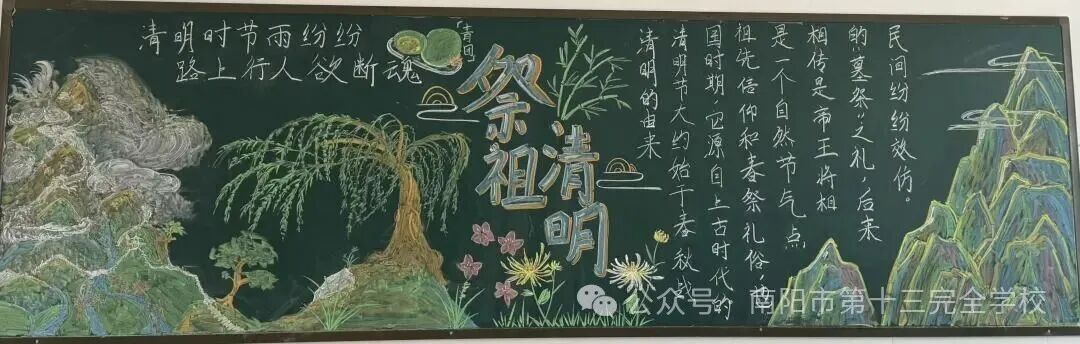 清明时节雨纷纷
路上行人欲断魂
青团
祭祖
清明
清明的由来
清明节大约始于春秋战
国时期,它源自上古时代的
祖先信仰和春祭礼俗,也
是一个自然节气点
相传是帝王将相
的“墓祭”之礼,后来
民间纷纷效仿。
公众号 南阳市第十三完全学校